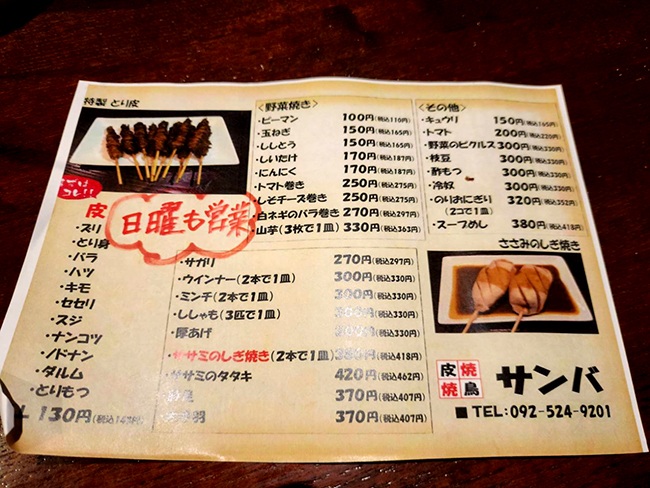 特製 とり皮
皮
・ズリ
・とり身
・バラ
・ハツ
・キモ
・セセリ
・スジ
・ナンコツ
・ノドナン
・ダルム
・とりもつ
130円(税込143円)
日曜も営業
<野菜焼き>
・ピーマン 100円(税込110円)
・玉ねぎ 150円(税込165円)
・ししとう 150円(税込165円)
・しいたけ 170円(税込187円)
・にんにく 170円(税込187円)
・トマト巻き 250円(税込275円)
・しそチーズ巻き 250円(税込275円)
・白ネギのバラ巻き 270円(税込297円)
・山芋(3枚で1皿) 330円(税込363円)
・サガリ 270円(税込297円)
・ウインナー(2本で1皿) 300円(税込330円)
・ミンチ(2本で1皿) 300円(税込330円)
・ししゃも(3匹で1皿) 300円(税込330円)
・厚あげ 300円(税込330円)
・ササミのしぎ焼き(2本で1皿) 380円(税込418円)
・ササミのタタキ 420円(税込462円)
370円(税込407円)
370円(税込407円)
<その他>
・キュウリ 150円(税込165円)
・トマト 200円(税込220円)
・野菜のピクルス 300円(税込330円)
・枝豆 300円(税込330円)
・酢もつ 300円(税込330円)
・冷奴 300円(税込330円)
・のりおにぎり 320円(税込352円)
(2コで1皿)
・スープめし 380円(税込418円)
ささみのしぎ焼き
皮焼 焼鳥 サンバ
■TEL:092-524-9201